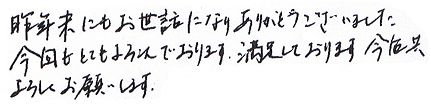 昨年末にもお世話になりありがとうございました
今回もとてもよろこんでおります。満足しております 今后共
よろしくお願いします.